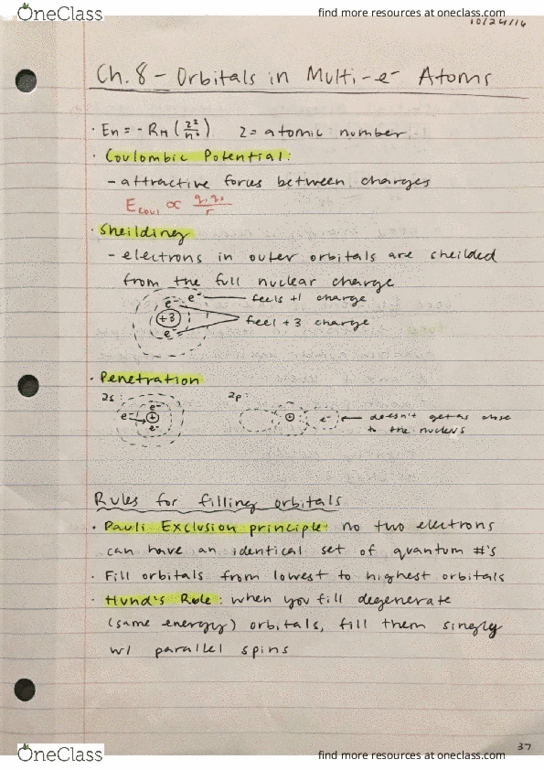 OneClass
find more resources at oneclass.com
10/24/16
Ch. 8 - Orbitals in Multi-e⁻ Atoms
· En = - RH (Z²/n²) Z = atomic number
· Coulombic Potential:
- attractive forces between charges
Ecoul ∝ q₁q₂/r
· Sheilding
- electrons in outer orbitals are sheilded
from the full nuclear charge
e⁻ e⁻ feels +1 charge
+3 feel +3 charge
e⁻
· Penetration
2s: 2p:
e⁻ e⁻ + e⁻
+ e⁻ doesn't get as close
to the nucleus
Rules for filling orbitals
· Pauli Exclusion principle: no two electrons
can have an identical set of quantum #'s
· Fill orbitals from lowest to highest orbitals
· Hund's Rule: when you fill degenerate
(same energy) orbitals, fill them singly
w/ parallel spins
37
OneClass
find more resources at oneclass.com